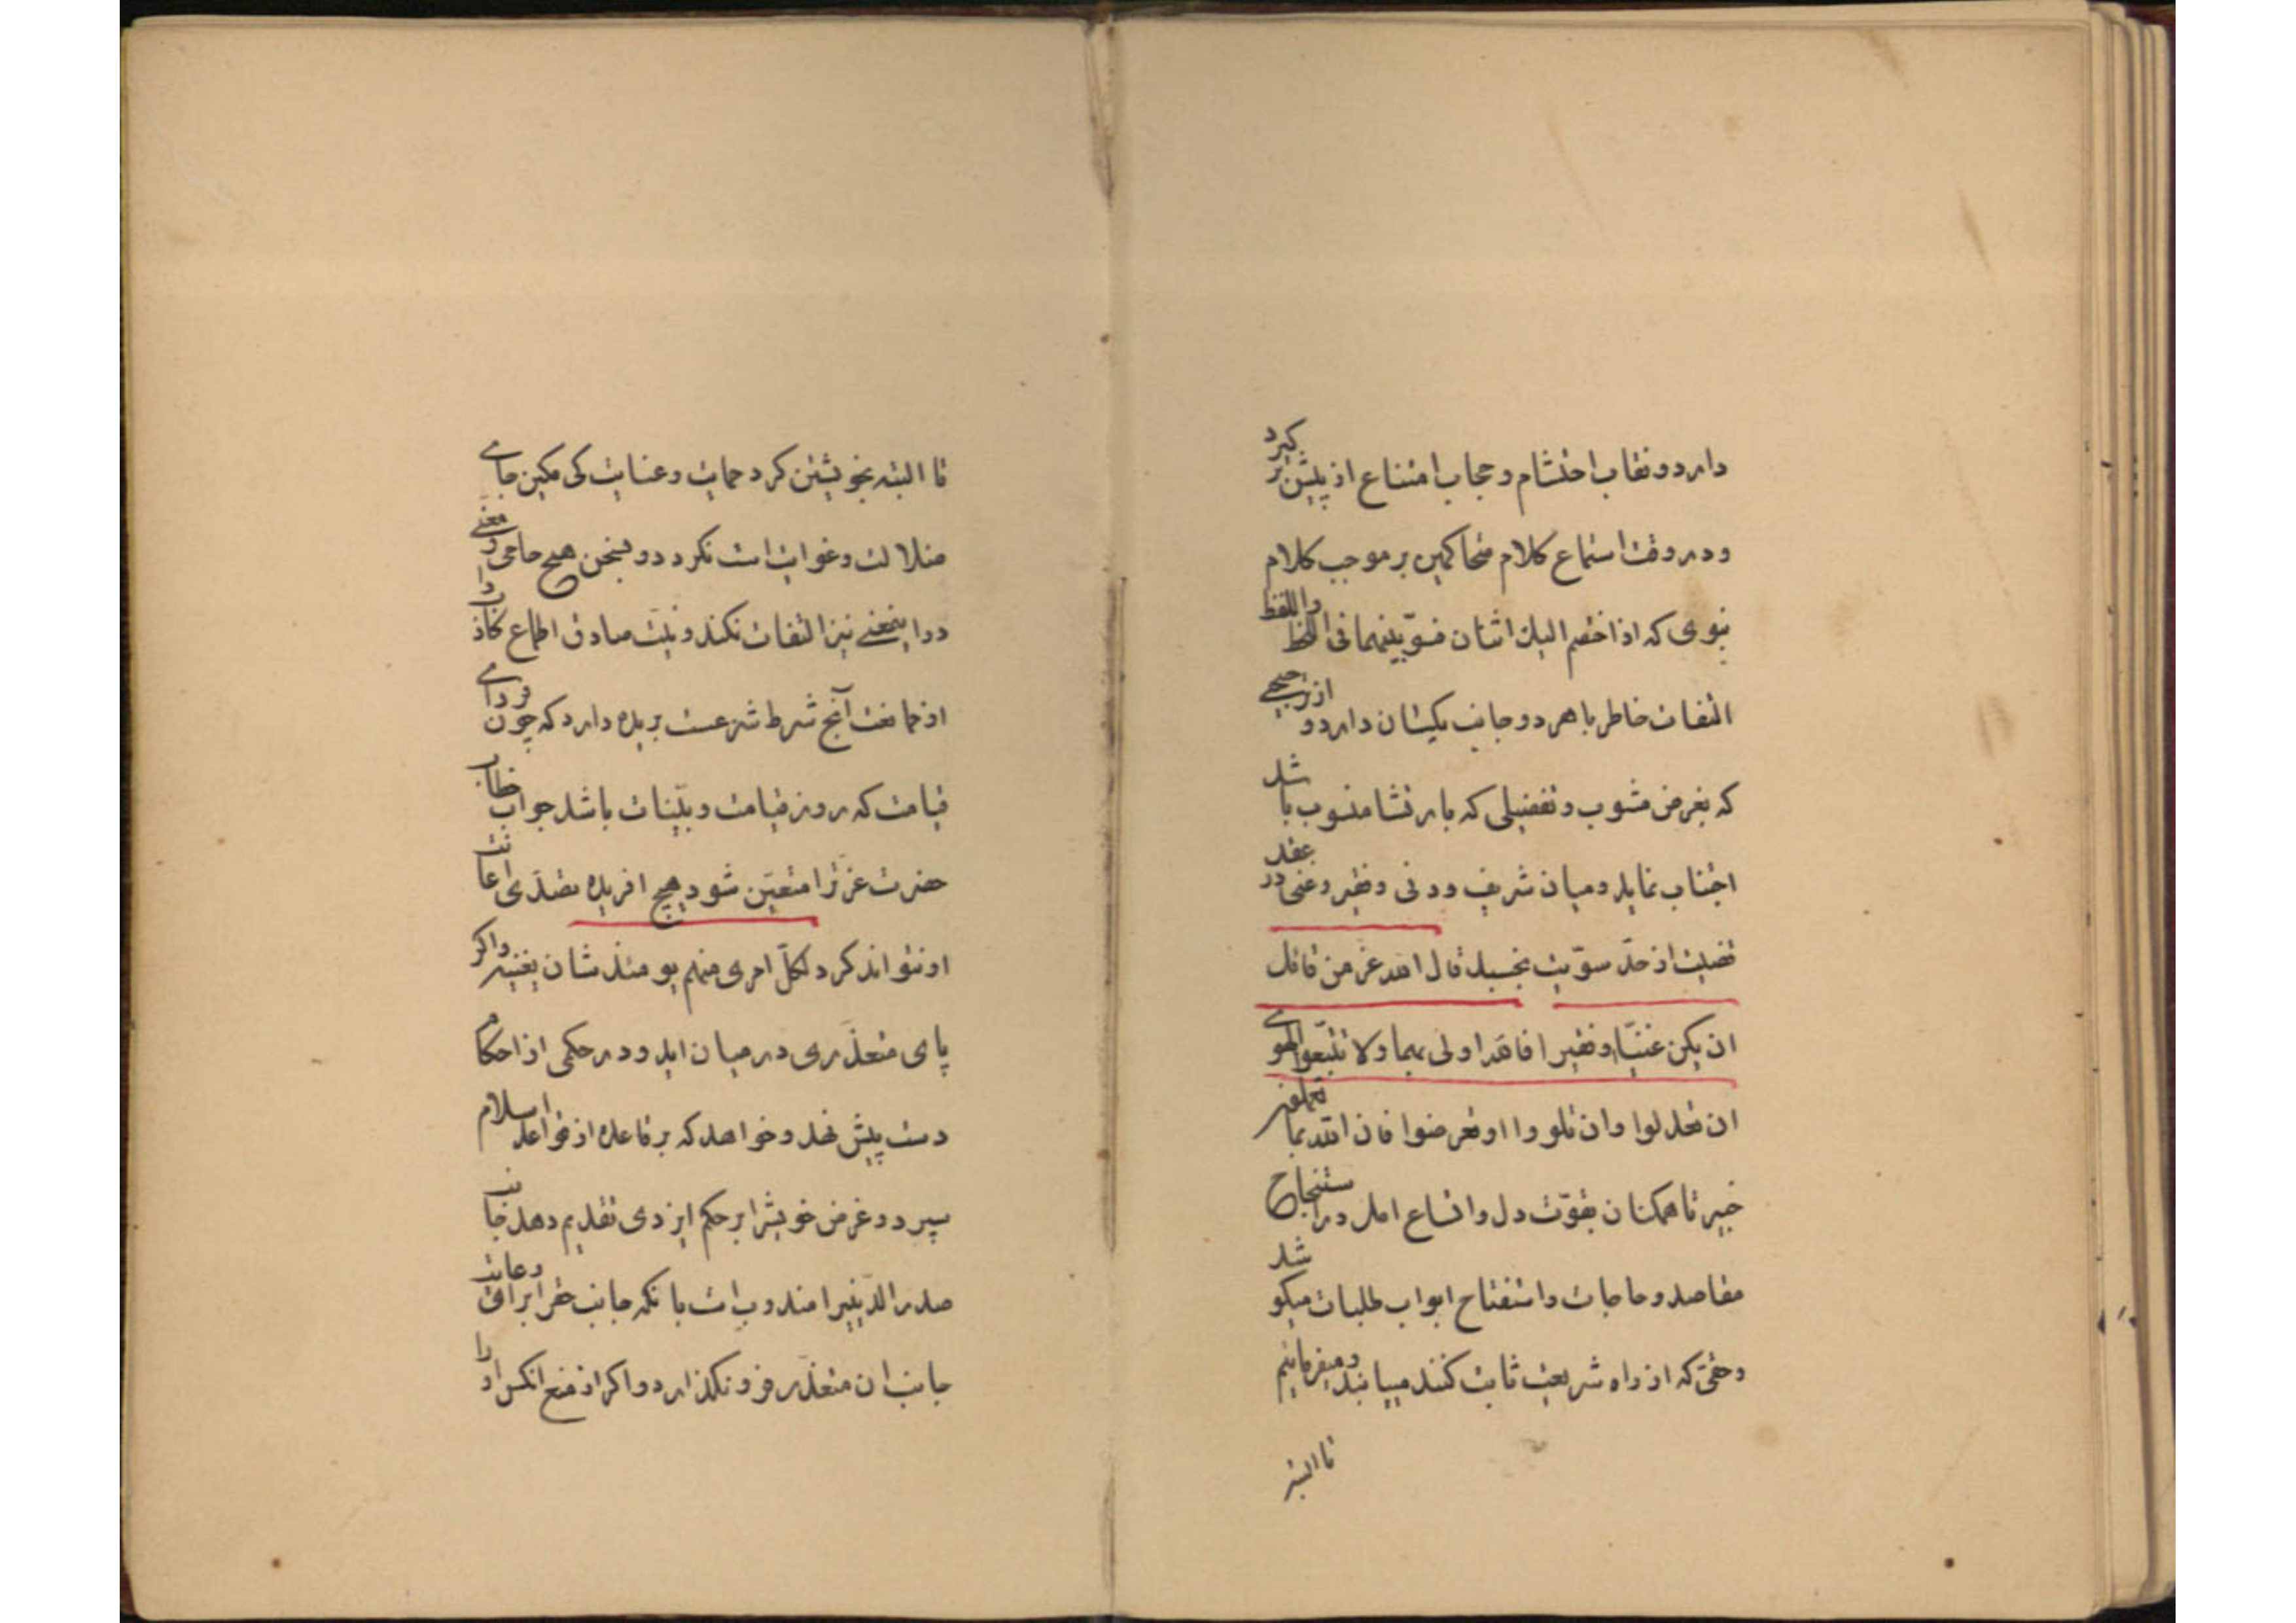 دارد و نقاب احتشام و حجاب امتناع از پیش بر گیرد
و در وقت استماع کلام متحاکمین بر موجب کلام
نبوی که اذا اختصم الیک اثنان فسوّ بینهما فی اللحظ و اللفظ
التفات خاطر با هر دو جانب یکسان دارد و از ترجیحی
که بغرض مشوب و تفضیلی که بارتشا منسوب باشد
اجتناب نماید و میان شریف و دنی و فقیر و غنی در عقد
قضیت از حدّ سوّیت نجسبد قال الله عزّ من قائل
ان یکن غنیّا او فقیرا فالله اولی بهما ولا تتّبعوا الهوی
ان تعدلوا وان تلووا او تعرضوا فان الله بما تعملون
خبیر تا همکنان بقوّت دل و اتساع امل در استنجاح
مقاصد و حاجات و استفتاح ابواب طلبات میکوشد
و حقی که از راه شریعت ثابت کنند مییابند و میفرمائیم
تا البته
تا البته بخویشتن کرد حمایت و عنایت کی مکین جای
ضلالت و غوایت است نکردد و بسخن هیچ حامی و معنی
در اینمعنی نیز التفات نکند و نیت صادق اطماع کاذب را
از ممانعت آنچ شرط شرعست بریده دارد که چون فردای
قیامت که روز قیامت و بیّنات باشد جواب خطاب
حضرت عزّترا متعیّن شود هیچ افریده تصدّی اعانت
او نتواند کرد لکلّ امری منهم یومئذ شان یغنیه و اکر
پای متعذّری در میان اید و در حکمی از احکام
دست پیش نهد و خواهد که بر قاعده از قواعد اسلام
سپرد و غرض خویشرا بر حکم ایزدی تقدیم دهد جانب
صدر الدّینیرا مندوب است بانکه جانب حقرا برای رعایت
جانب ان متعذّر فرو نکذارد و اکر از منع انکس او را